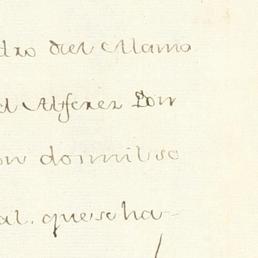 dro del Alamo
el Alferez Don
on domil so
al. quese ha-